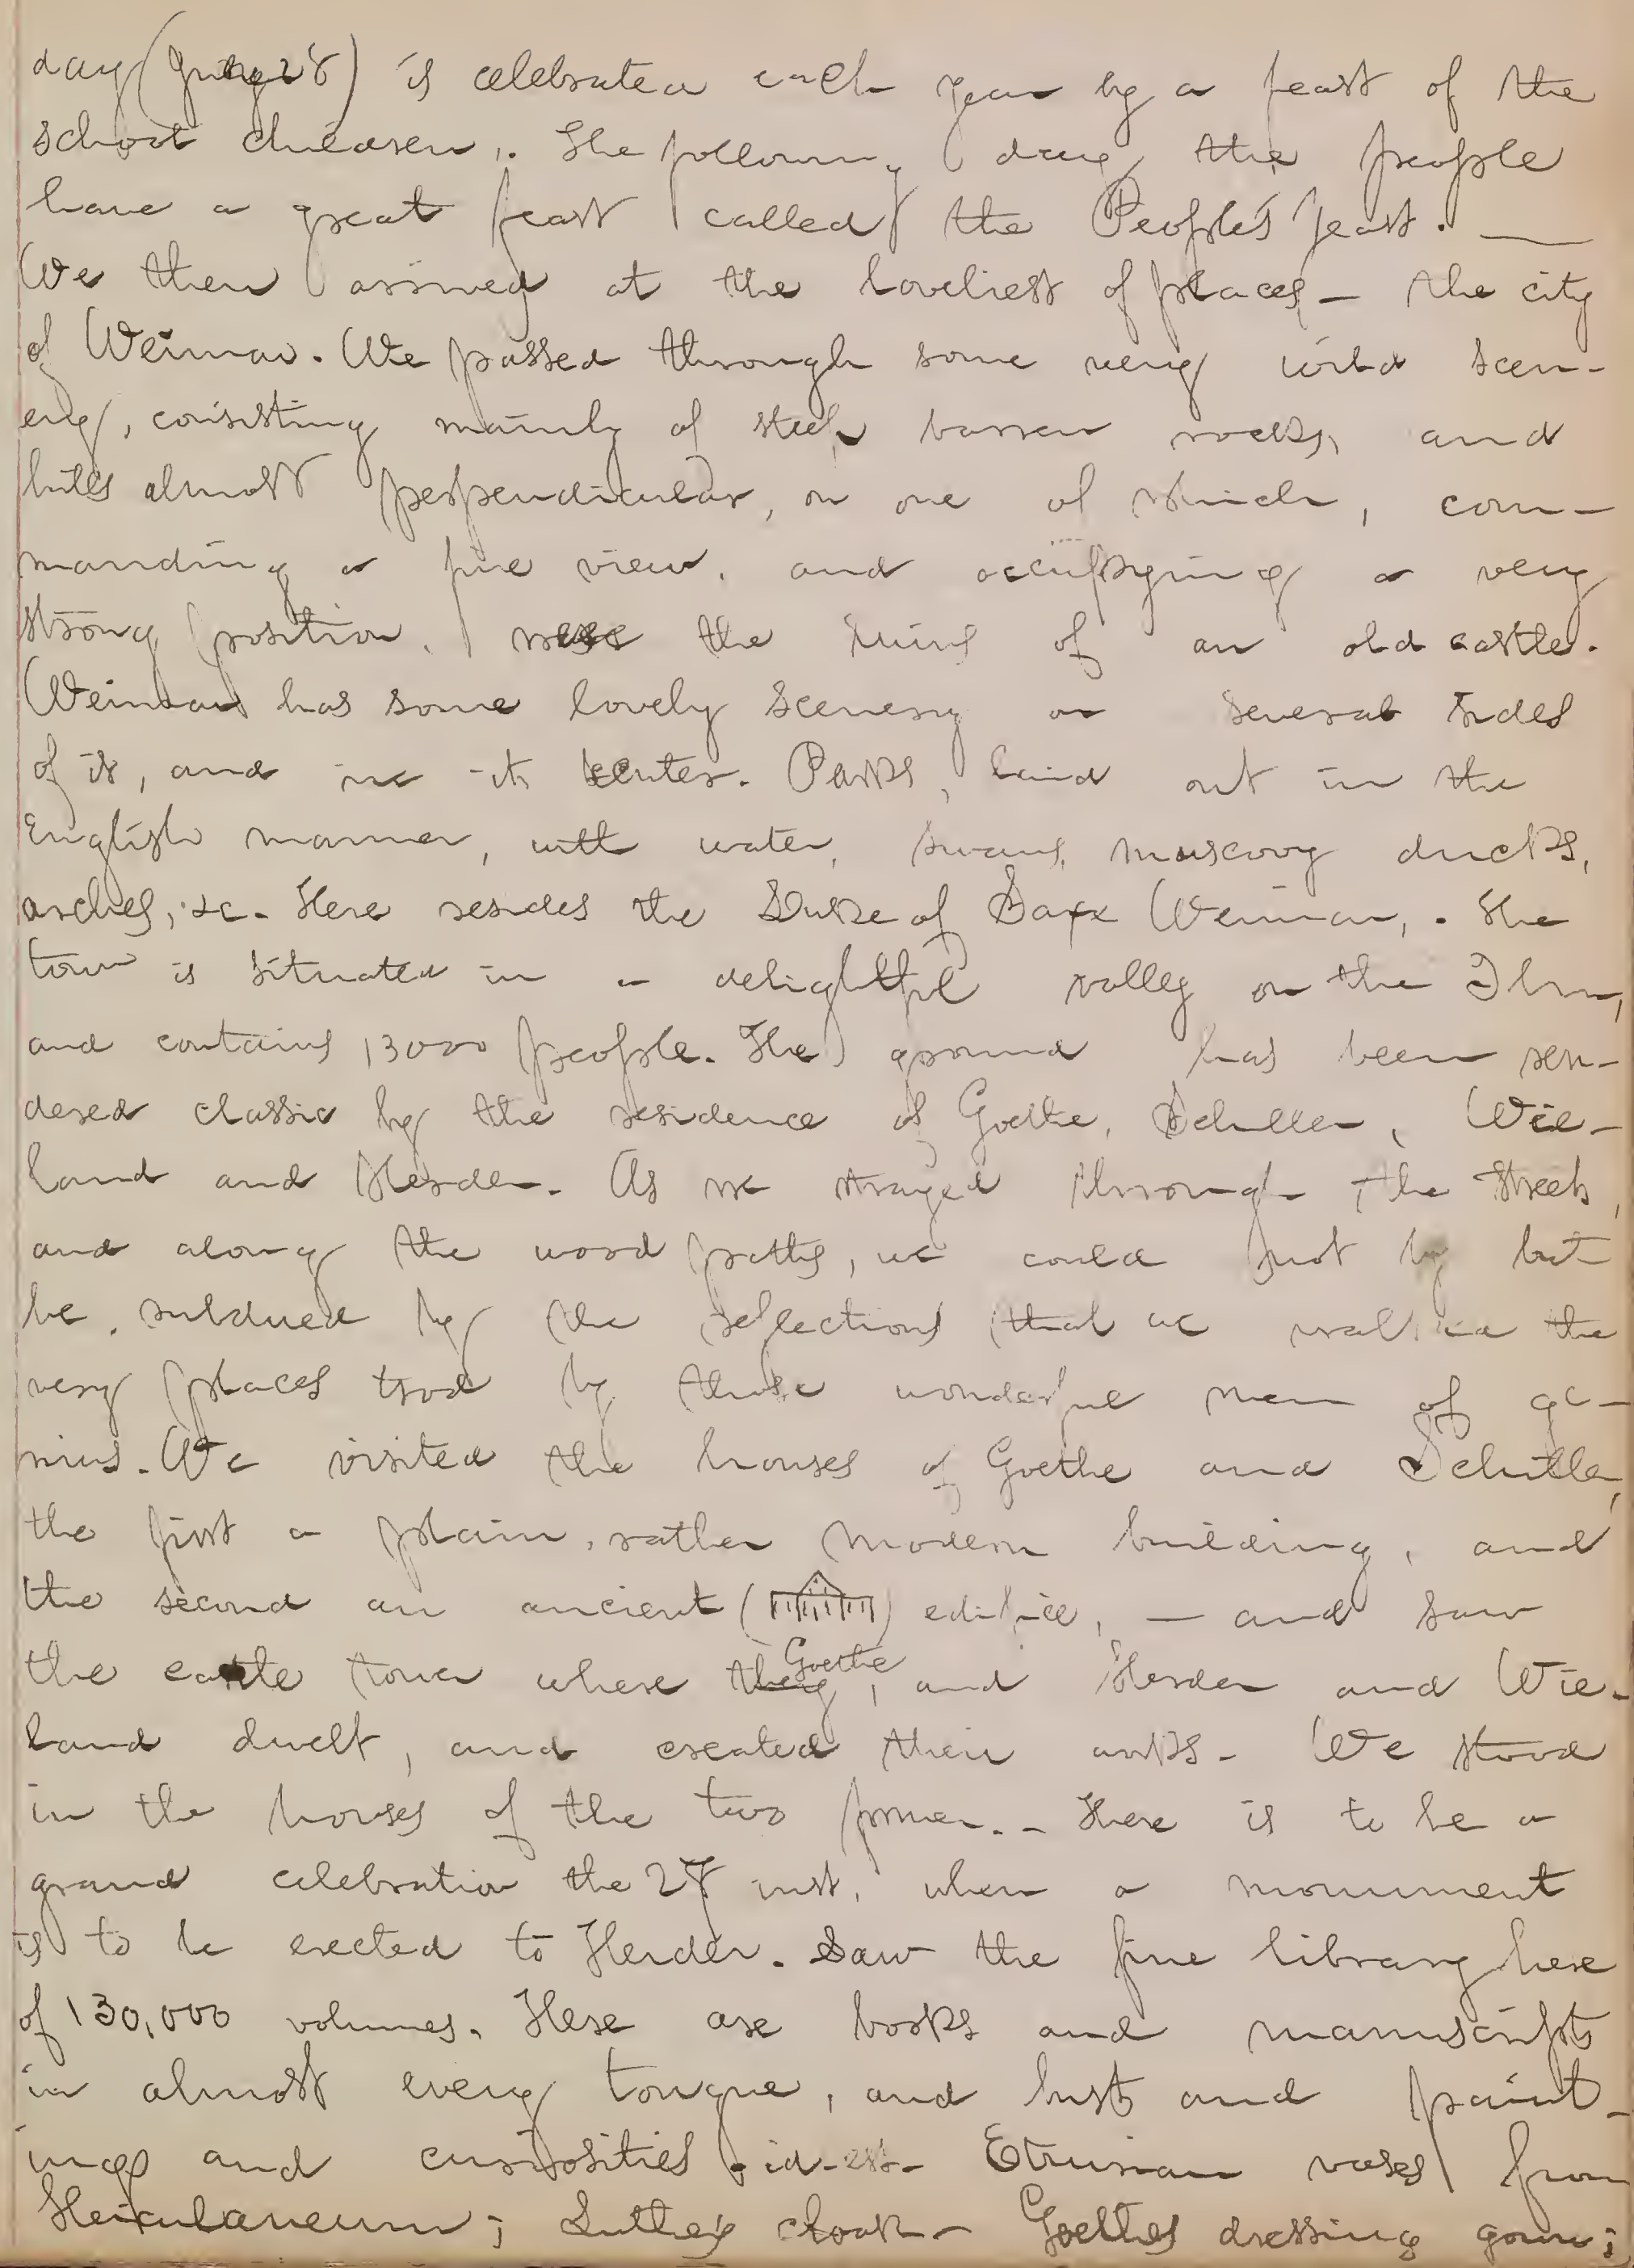 day (July 28) is celebrated each year by a feast of the
school children,. The following day, the people
have a great feast called the People's feast. —
We then arrived at the loveliest of places — the city
of Weimar. We passed through some very wild scen-
ery, consisting mainly of steep barren rocks, and
hills almost perpendicular, on one of which, com-
manding a fine view, and occupying a very
strong position, were the ruins of an old castle.
Weimar has some lovely scenery on several sides
of it, and in its center. Parks, laid out in the
English manner, with water, swans, muscovy ducks,
arches, &c. Here resides the Duke of Saxe Weimar,. The
town is situated in a delightful valley on the Ilm,
and contains 13000 people. The ground has been ren-
dered classic by the residence of Goethe, Schiller, Wie-
land and Herder. As we strayed through the streets,
and along the wood paths, we could not but
be subdued by the reflections that we walked the
very places trod by these wonderful men of ge-
nius. We visited the houses of Goethe and Schiller,
the first a plain, rather modern building, and
the second an ancient ( ) edifice, — and saw
the castle tower where they Goethe, and Herder and Wie-
land dwelt, and created their works. We stood
in the houses of the two former. - Here is to be a
grand celebration the 28 inst. when a monument
is to be erected to Herder. Saw the fine library here
of 130,000 volumes. Here are books and manuscripts
in almost every tongue, and busts and paint-
ings and curiosities. id-est- Etruscan vases from
Herculaneum; Luther's cloak - Goethes dressing gown;